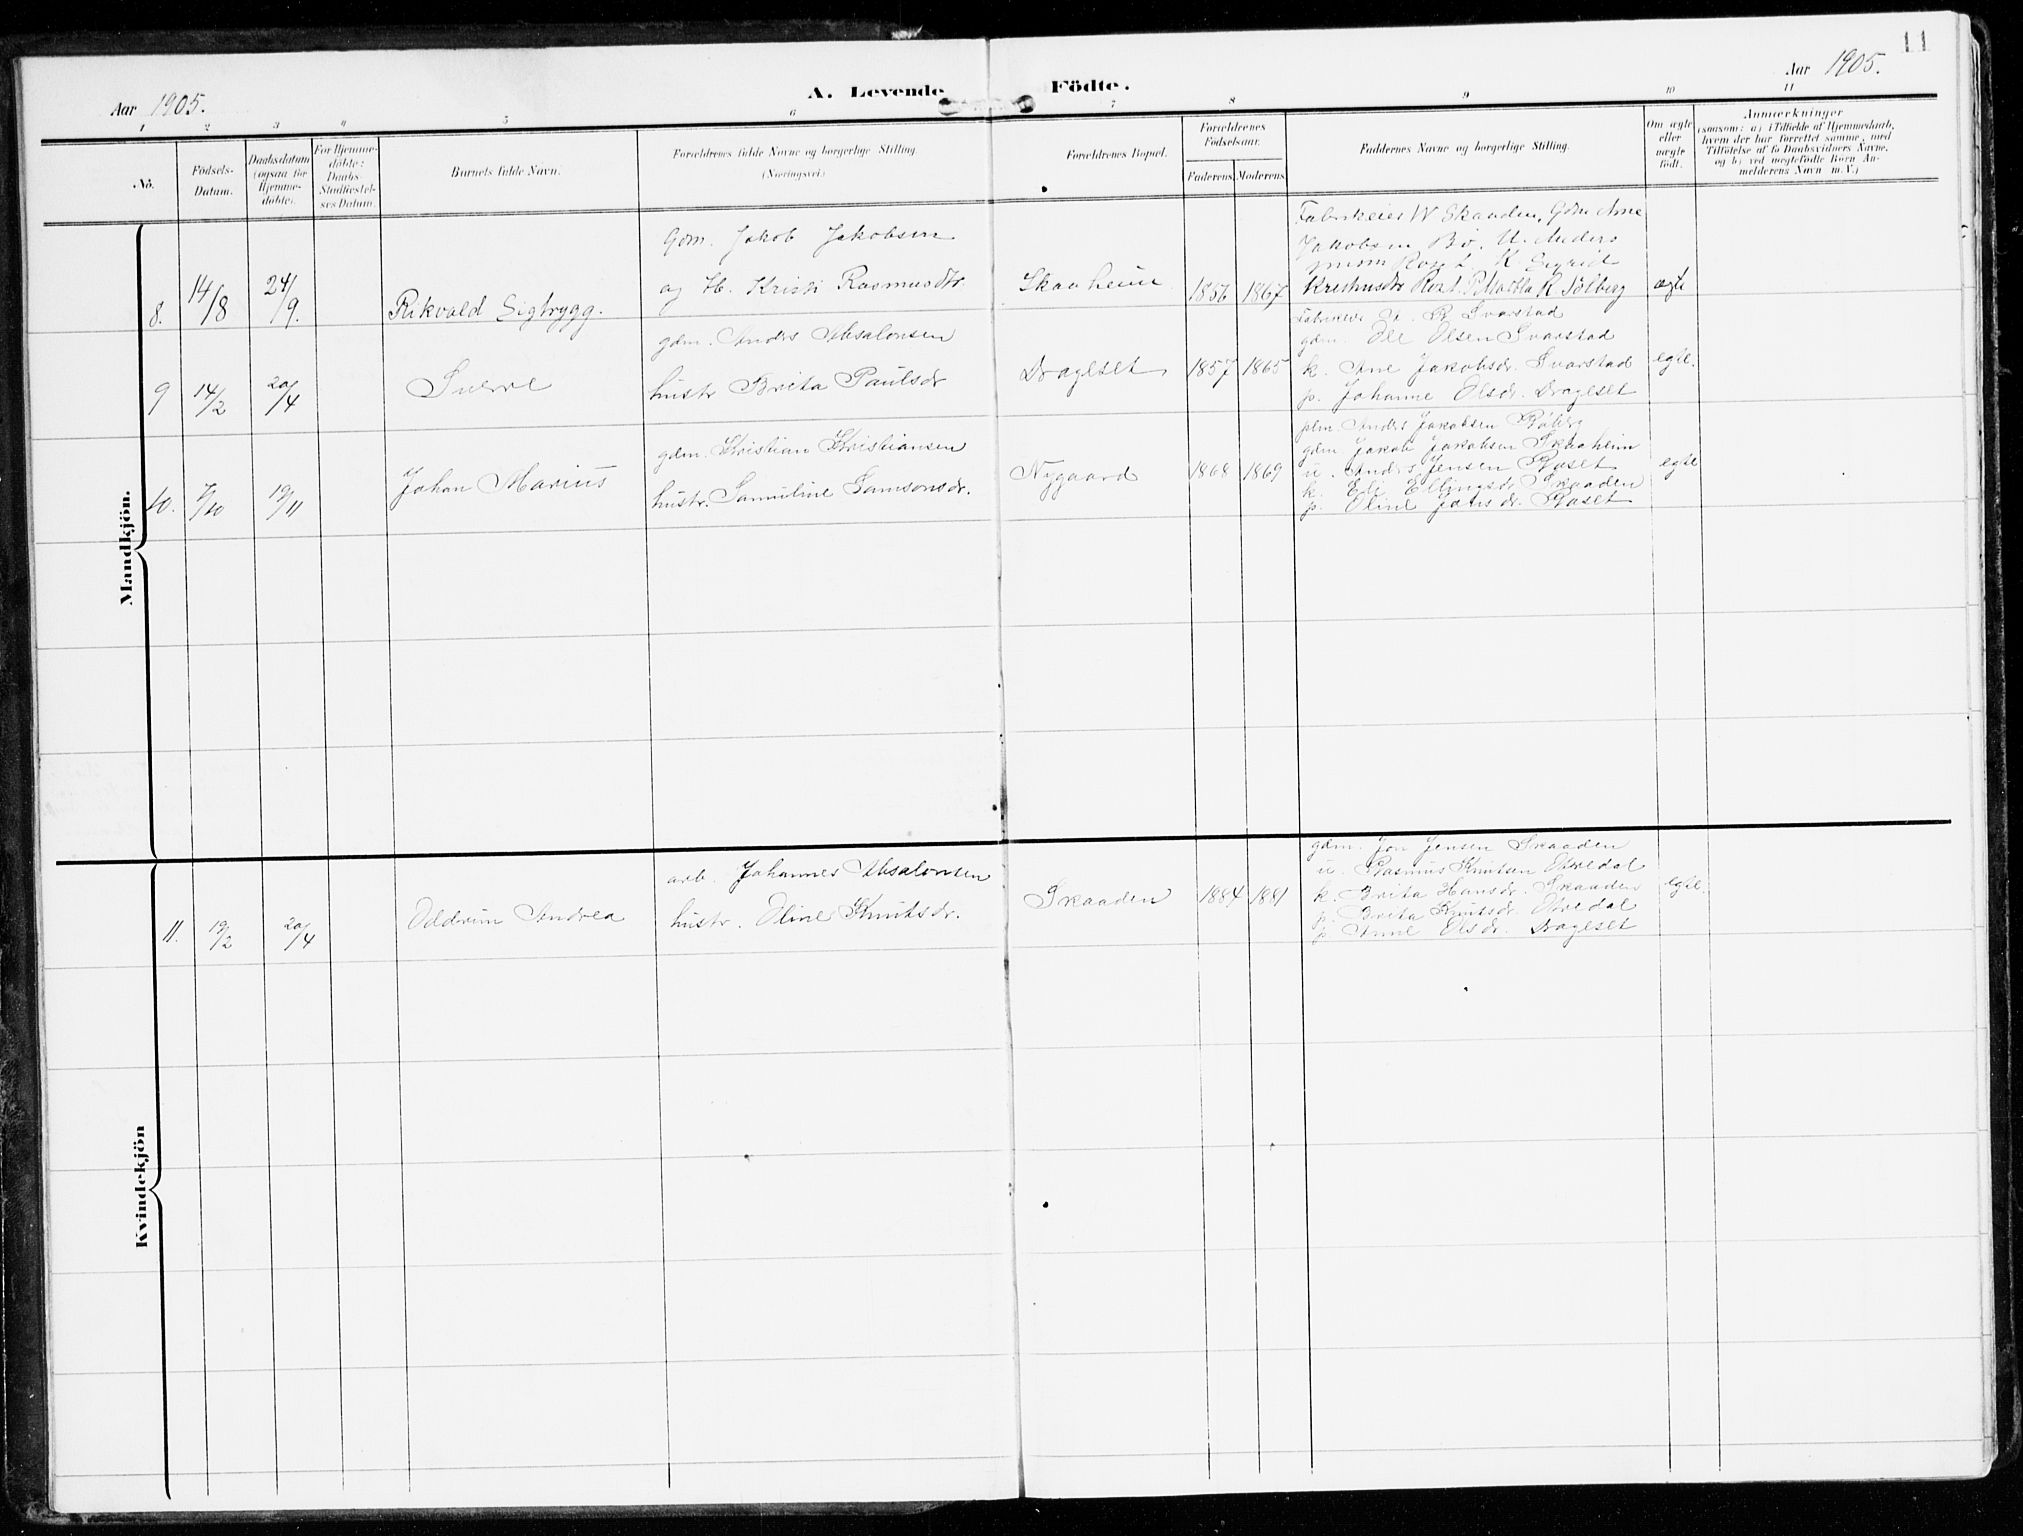 11
Aar 1905.
A. Levende Födte.
Aar 1905.
1 2 3 4 5 6 7 8 9 10 11
No.
Födsels-Datum.
Daabsdatum (ogsaa for Hjemme-döbte).
For Hjemme-döbte: Daabs-Stadfæstel-ses Datum.
Barnets fulde Navn.
Forældrenes fulde Navne og borgerlige Stilling.
(Næringsvei.)
Forældrenes Bopæl.
Forældrenes Födselsaar.
Faderens Moderens
Faddernes Navne og borgerlige Stilling.
Om ægte eller uægte födt.
Anmærkninger
(saasom: a) i Tilfælde af Hjemmedaab, hvem der har forrettet samme, med Tilföielse af to Daabsvidners Navne, og b) ved uægtefödte Börn Anmelderens Navn m.V.)
Mandkjön.
8. 14/8 24/9.
Rikvald Sigtrygg.
Gdm. Jakob Jakobsen
og H. Kristi Rasmusdtr
Skaaheim
1856 1867
Skaaden, Gdm Arne
Jakobsen Bö. U. Anders
K. Sigrid
Solberg
ægte
9 14/2 20/4
Sverre
gdm. Anders Absalonsen
hustr Brita Paulsdr
Drageset
1857 1865
Svarstad
gdm. Ole Olsen Svarstad
k. Ane Jakobsdr. Svarstad
p. Johanne Olsdr. Drageset
egte.
10. 7/10 19/11
Johan Marius
gdm. Kristian Kristiansen
hustr. Samuline Samsonsdr.
Nygaard
1868 1869
Anders Jakobsen
gdm Jakob Jakobsen Skaaheim
u. Anders Jensen Raset
k. Eli Ellingsdr Skaaden
p. Oline Jansdr. Raset
egte
Kvindekjön
11. 19/2 20/4
Oddrun Andrea
arb. Johannes Absalonsen
hustr. Oline Knutsdr.
Skaaden
1884 1881
gdm. Jon Jensen Skaaden
u. Rasmus Knutsen
k. Brita Hansdr. Skaaden
p. Brita Knutsdr.
p. Anne Olsdr. Drageset
egte.